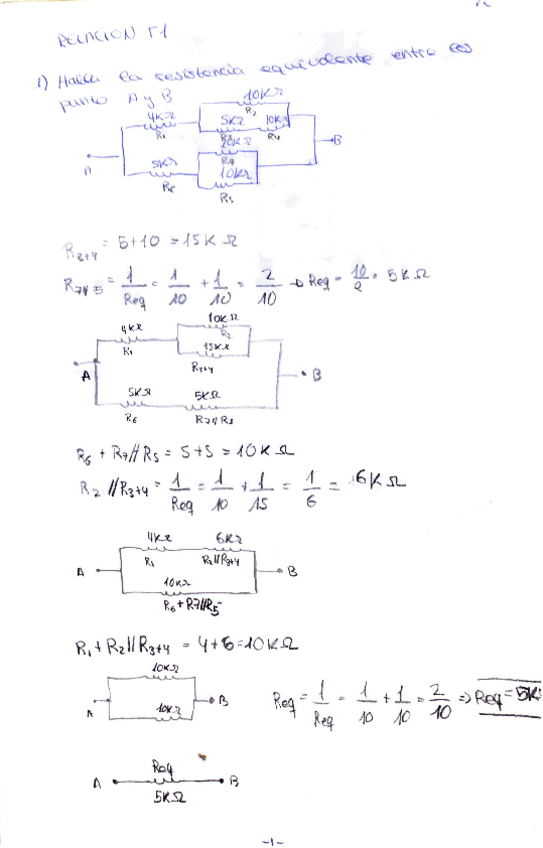 RELACION T1
1) Halla la resistencia equivalente entre los
punto A y B
10KΩ
R2
4KΩ
R1
5KΩ
10K
R3
R4
10KΩ
A
B
5KΩ
R6
10KΩ
R5
R3+4 = 5+10 = 15K Ω
R7//5 = 1/Req = 1/10 + 1/10 = 2/10 → Req = 10/2 = 5K Ω
4KΩ
R1
10KΩ
R2
15KΩ
R3+4
A
B
5KΩ
R6
5KΩ
R7//R5
R6 + R7//R5 = 5+5 = 10K Ω
R2 //R3+4 = 1/Req = 1/10 + 1/15 = 1/6 = 6K Ω
4KΩ
R1
6KΩ
R2//R3+4
A
B
10KΩ
R6+R7//R5
R1 + R2//R3+4 = 4+6 = 10K Ω
10KΩ
A
B
10KΩ
Req = 1/Req = 1/10 + 1/10 = 2/10 => Req = 5K
Req
A
B
5KΩ
-1-